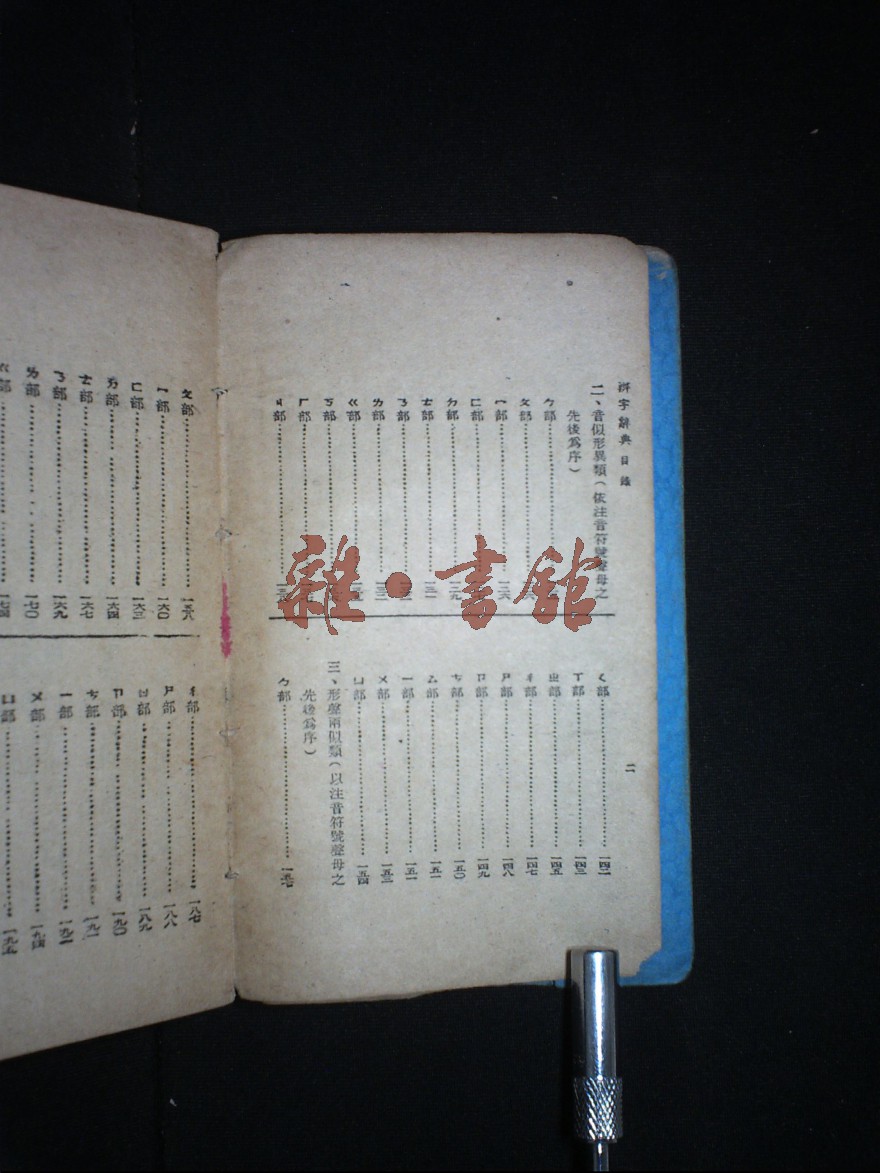 辨字辭典 目錄
二
二、音似形異類(依注音符號聲母之
先後為序)
ㄅ部
ㄆ部
ㄇ部
ㄈ部
ㄉ部
ㄊ部
ㄋ部
ㄌ部
ㄍ部
ㄎ部
ㄏ部
ㄐ部
ㄑ部 一四二
ㄒ部 一四三
ㄓ部 一四五
ㄔ部 一四七
ㄕ部 一四八
ㄖ部 一四九
ㄗ部 一五〇
ㄙ部 一五一
ㄧ部 一五一
ㄨ部 一五三
ㄩ部 一五四
三、形聲兩似類(以注音符號聲母之
先後為序)
ㄅ部 一五七
ㄆ部 一五八
ㄇ部 一六〇
ㄈ部 一六三
ㄉ部 一六四
ㄊ部 一六七
ㄋ部 一六九
ㄌ部 一七〇
ㄍ部 一七四
ㄔ部 一八七
ㄕ部 一八八
ㄖ部 一八九
ㄗ部 一九〇
ㄘ部 一九一
ㄧ部 一九二
ㄨ部 一九四
ㄩ部 一九五
雜·書館